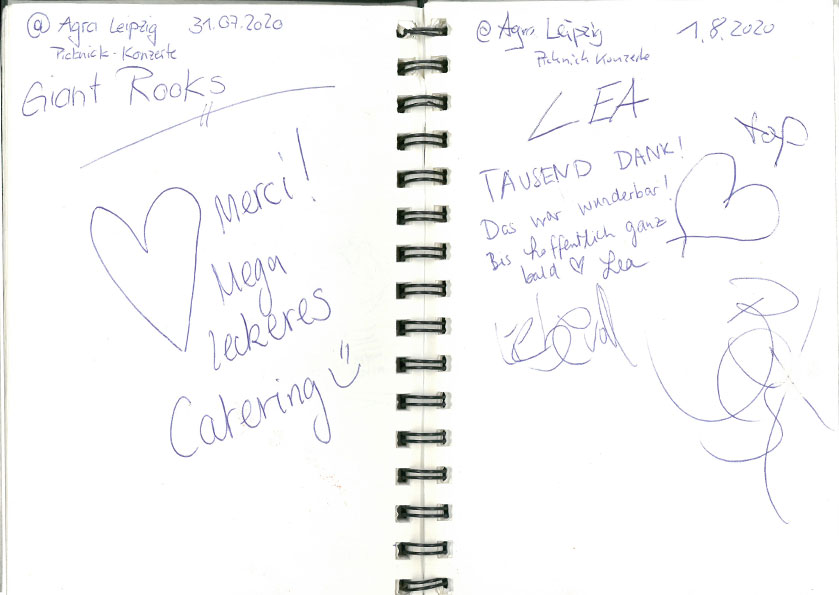 @ Agra Leipzig 31.07.2020
Picknick-Konzerte
Giant Rooks
Merci!
Mega
leckeres
Catering
@ Agra Leipzig 1.8.2020
Picknick Konzerte
LEA
top
TAUSEND DANK!
Das war wunderbar!
Bis hoffentlich ganz
bald ♡ Lea